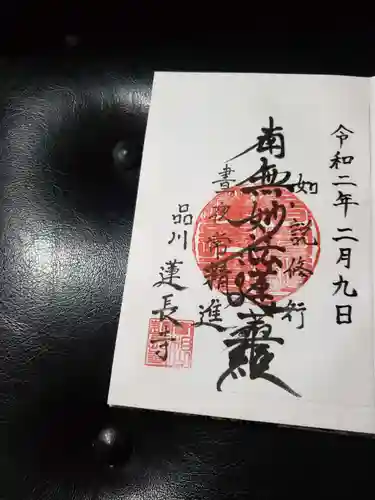 令和二年二月九日
如説修行
南無妙法蓮華経
昼夜常精進
品川
蓮長寺